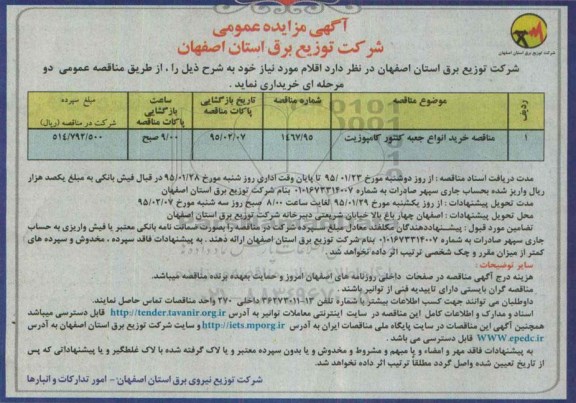 آگهی مزایده عمومی
شرکت توزیع برق استان اصفهان
شرکت توزیع برق استان اصفهان
شرکت توزیع برق استان اصفهان در نظر دارد اقلام مورد نیاز خود به شرح ذیل را ، از طریق مناقصه عمومی دو
مرحله ای خریداری نماید .
ردیف موضوع مناقصه شماره مناقصه تاریخ بازگشایی پاکات مناقصه ساعت بازگشایی پاکات مناقصه مبلغ سپرده شرکت در مناقصه (ریال)
۱ مناقصه خرید انواع جعبه کنتور کامپوزیت ۱۴۶۷/۹۵ ۹۵/۰۲/۰۷ ۹/۰۰ صبح ۵۱۴/۷۹۲/۵۰۰
مدت دریافت اسناد مناقصه : از روز دوشنبه مورخ ۹۵/۰۱/۲۳ تا پایان وقت اداری روز شنبه مورخ ۹۵/۰۱/۲۸ در قبال فیش بانکی به مبلغ یکصد هزار
ریال واریز شده بحساب جاری سپهر صادرات به شماره ۰۱۰۱۶۷۳۳۱۴۰۰۷ بنام شرکت توزیع برق استان اصفهان
مدت تحویل پیشنهادات : از روز یکشنبه مورخ ۹۵/۰۱/۲۹ لغایت ساعت ۸/۰۰ صبح روز سه شنبه مورخ ۹۵/۰۲/۰۷
محل تحویل پیشنهادات : اصفهان چهار باغ بالا خیابان شریعتی دبیرخانه شرکت توزیع برق استان اصفهان
تضامین مورد قبول : پیشنهاددهندگان مکلفند معادل مبلغ سپرده شرکت در مناقصه را بصورت ضمانت نامه بانکی معتبر یا فیش واریزی به حساب
جاری سپهر صادرات به شماره ۰۱۰۱۶۷۳۳۱۴۰۰۷ بنام شرکت توزیع برق استان اصفهان ارائه دهند . به پیشنهادات فاقد سپرده ، مخدوش و سپرده های
کمتر از میزان مقرر و چک شخصی ترتیب اثر داده نخواهد شد .
سایر توضیحات :
هزینه درج آگهی مناقصه در صفحات داخلی روزنامه های اصفهان امروز و حمایت بعهده برنده مناقصه میباشد.
مناقصه گران بایستی دارای تاییدیه فنی از توانیر باشند .
داوطلبان می توانند جهت کسب اطلاعات بیشتر با شماره تلفن ۱۲-۳۶۲۷۳۰۱۱ داخلی ۲۷۰ واحد مناقصات تماس حاصل نمایند.
اسناد و مدارک و اطلاعات کامل این مناقصه در سایت اینترنتی معاملات توانیر به آدرس http://tender.tavanir.org.ir قابل دسترسی میباشد
همچنین آگهی این مناقصات در سایت پایگاه ملی مناقصات ایران به آدرس http://iets.mporg.ir و سایت شرکت توزیع برق استان اصفهان به آدرس
WWW.epedc.ir قابل دسترسی می باشد .
به پیشنهادات فاقد مهر و امضاء و یا مبهم و مشروط و مخدوش و یا بدون سپرده معتبر و یا لاک گرفته شده با لاک غلطگیر و یا پیشنهاداتی که پس
از تاریخ تعیین شده واصل گردد مطلقا ترتیب اثر داده نخواهد شد.
شرکت توزیع نیروی برق استان اصفهان - امور تدارکات و انبارها